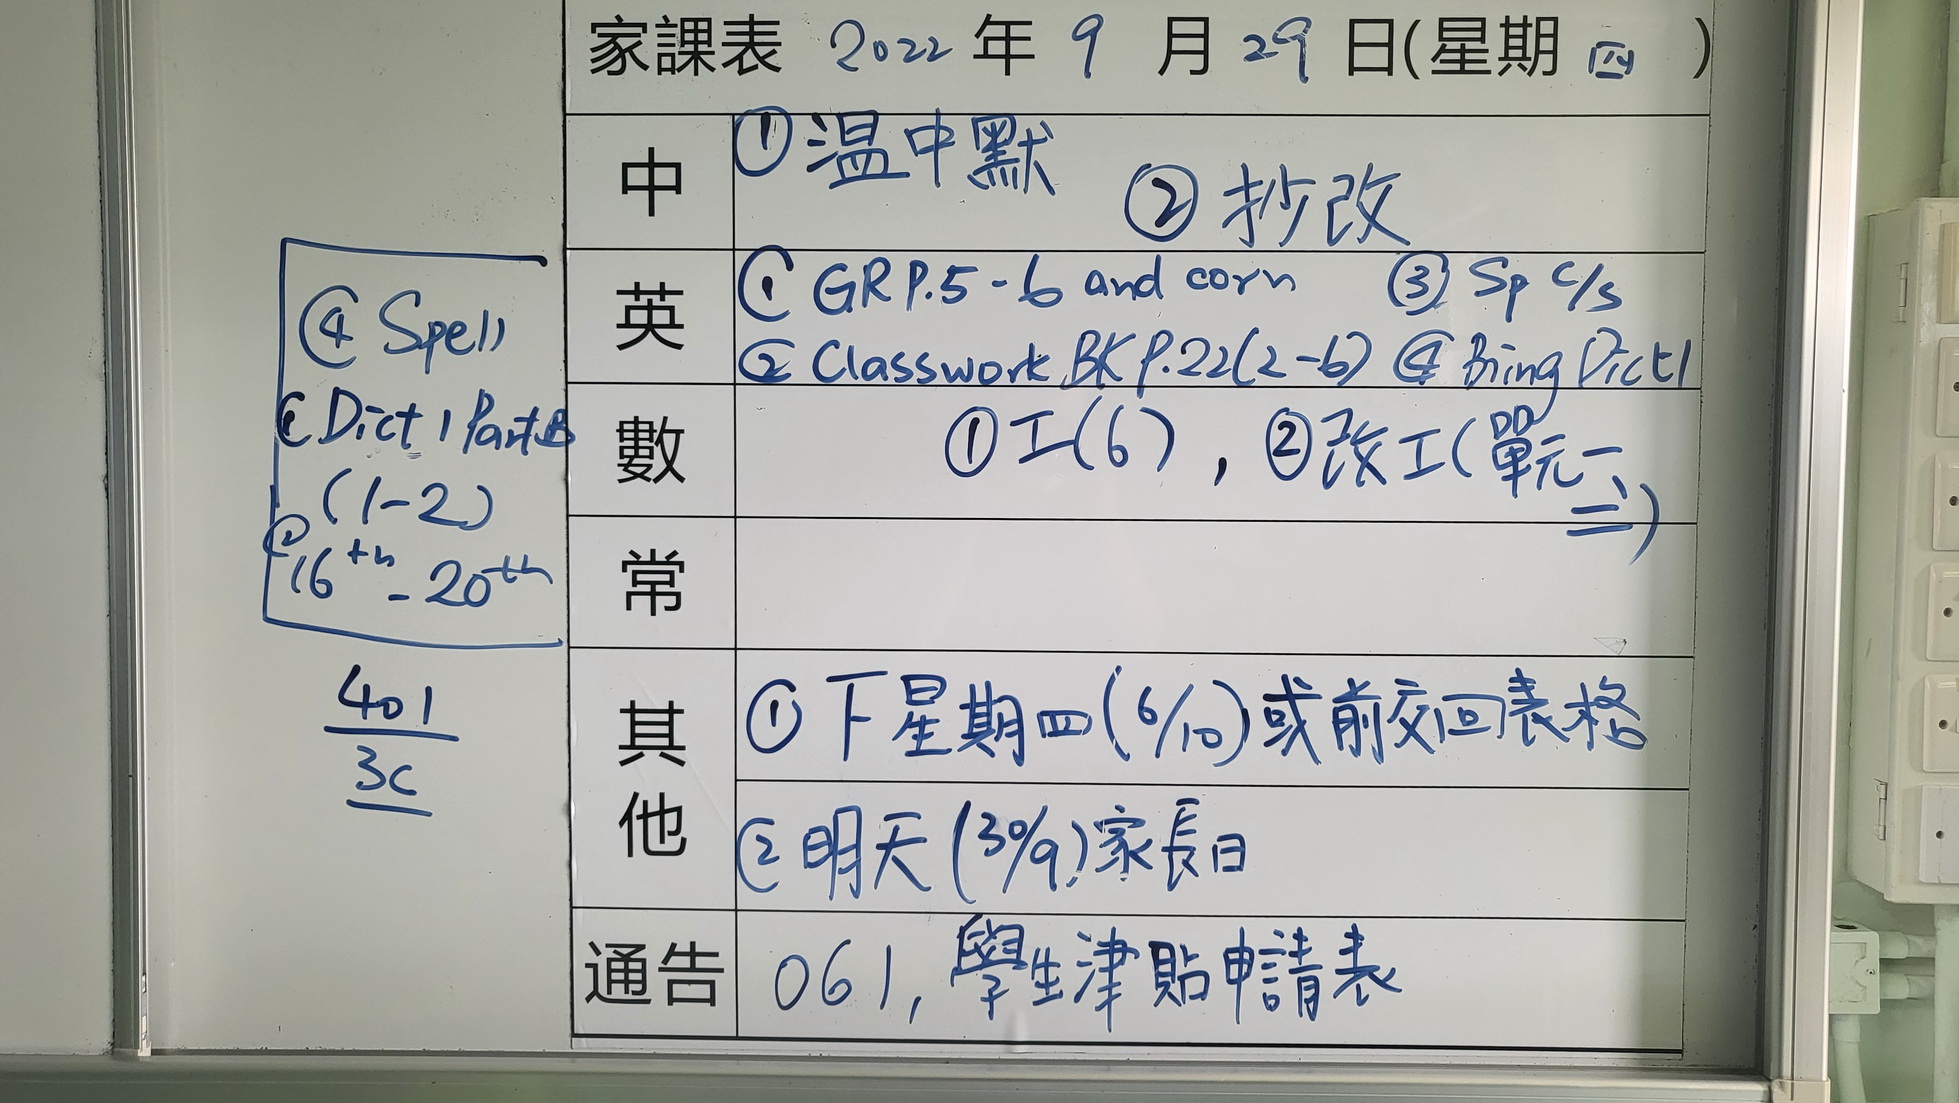 家課表 2022 年 9 月 29 日(星期 四 )
中
① 温中默
② 抄改
英
① GR P.5-6 and corn ③ Sp c/s
② Classwork BK P.22(2-6) ④ Bring Dict 1
數
① 工(6), ② 改工(單元一、
二)
常
其他
① 下星期四(6/10)或前交回表格
② 明天(30/9)家長日
通告
061, 學生津貼申請表
④ Spell
① Dict 1 Part B
(1-2)
② 16th - 20th
401
3C